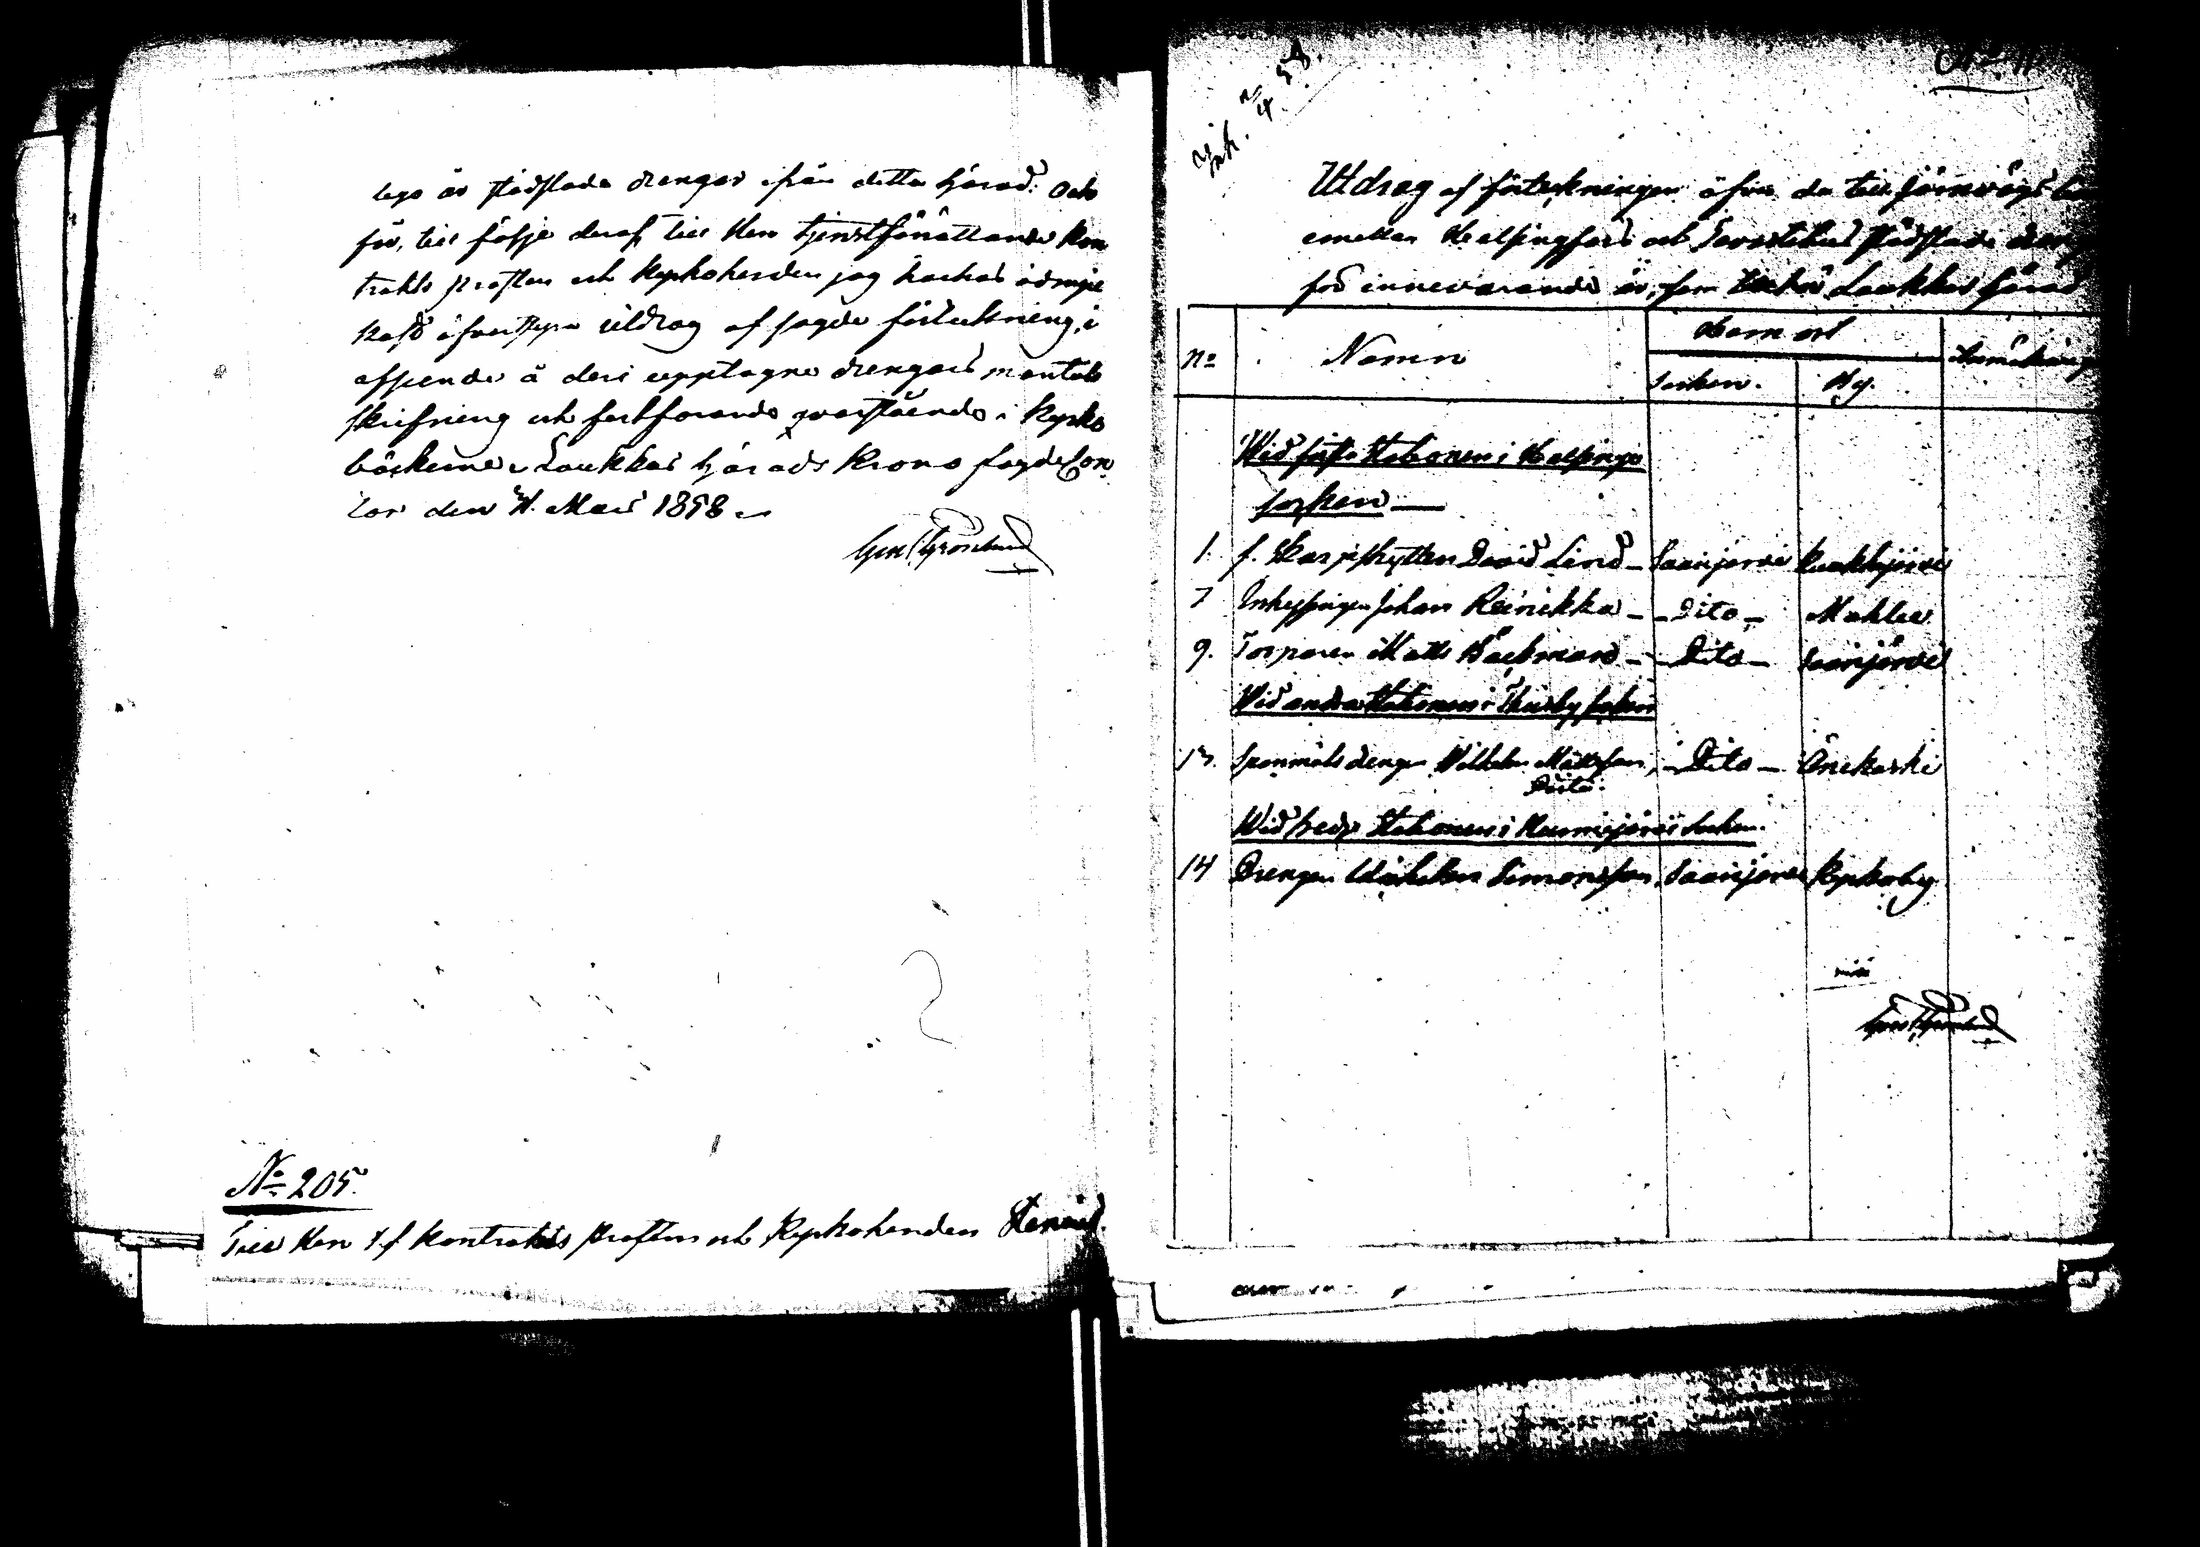 lego år städslade drengar ifrån detta härad; och
för, till följe deraf, till Herr tjenstförättande Kon
trakts prosten och Kyrkoherden jag härhos ödmju
kast öfversända utdrag af sagde förteckning, i
afseende å deri upptagne drengars mantals
skrifning och fortfarande qvarstående i Kyrko
böckerne. Laukkas härads Krono fogde Con
tor den 4. Maii 1858.
Gust Grönlund
No 205.
Till Herr t.f. Kontrakts Prosten och Kyrkoherden Stenius.
Ink. 58.
Utdrag af förteckningen öfver de till jernvägs
emellan Helsingfors och Tavastehus städslade dren
för innevarande år, från Laukkas härad
No Namn Hemort Anmärkning
Socken. By.
Wid första Stationen i Helsinge
socken
1. f. Skarpskytten David Lind Saarijärvi Kuukkajärvi
7 Inhysingen Johan Reinikka Dito Mahlu
9. Torparen Matts Bäckman Dito Saarijärvi
Wid andra Stationen i Thusby socken
13. Spanmåls drengen Wilhelm Mattsson Dito Änekoski
Wid tredje Stationen i Nurmijärvi Socken.
14 Drengen Wilhelm Simonsson Saarijärvi Kyrkoby
Gust Grönlund